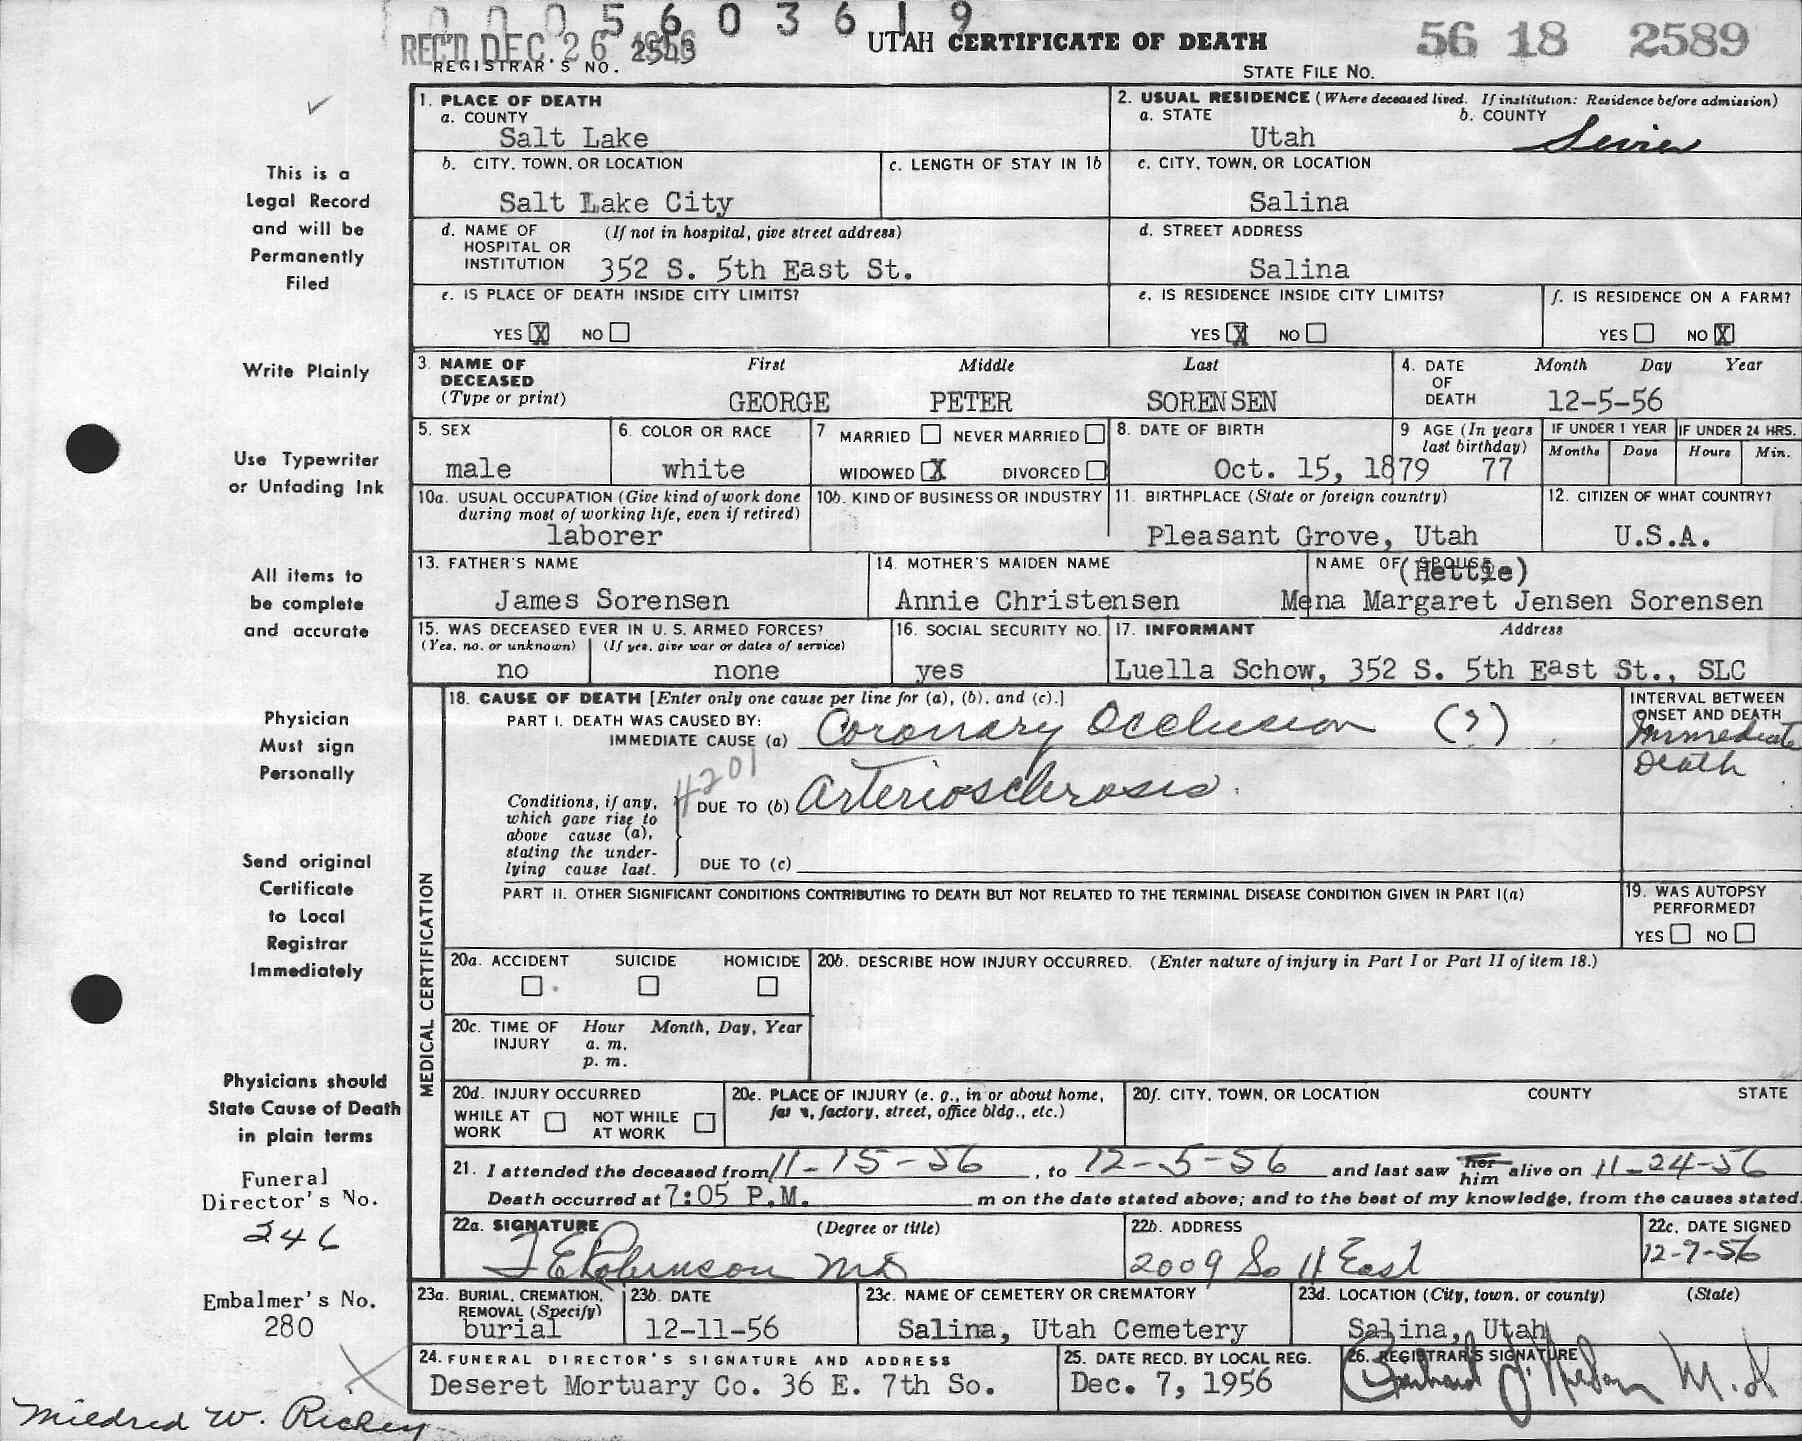 0 0 0 5 6 0 3 6 1 9
REC'D DEC. 26 1956
UTAH CERTIFICATE OF DEATH
56 18 2589
REGISTRAR'S NO.
STATE FILE NO.
1. PLACE OF DEATH
a. COUNTY
Salt Lake
2. USUAL RESIDENCE (Where deceased lived. If institution: Residence before admission)
a. STATE
Utah
b. COUNTY
Sevier
b. CITY, TOWN, OR LOCATION
Salt Lake City
c. LENGTH OF STAY IN 1b
c. CITY, TOWN, OR LOCATION
Salina
d. NAME OF HOSPITAL OR INSTITUTION (If not in hospital, give street address)
352 S. 5th East St.
d. STREET ADDRESS
Salina
e. IS PLACE OF DEATH INSIDE CITY LIMITS?
YES X NO
e. IS RESIDENCE INSIDE CITY LIMITS?
YES X NO
f. IS RESIDENCE ON A FARM?
YES NO X
3. NAME OF DECEASED (Type or print)
First Middle Last
GEORGE PETER SORENSEN
4. DATE OF DEATH
Month Day Year
12-5-56
5. SEX
male
6. COLOR OR RACE
white
7 MARRIED NEVER MARRIED
WIDOWED X DIVORCED
8. DATE OF BIRTH
Oct. 15, 1879
9 AGE (In years last birthday)
77
IF UNDER 1 YEAR
Months Days
IF UNDER 24 HRS.
Hours Min.
10a. USUAL OCCUPATION (Give kind of work done during most of working life, even if retired)
laborer
10b. KIND OF BUSINESS OR INDUSTRY
11. BIRTHPLACE (State or foreign country)
Pleasant Grove, Utah
12. CITIZEN OF WHAT COUNTRY?
U.S.A.
13. FATHER'S NAME
James Sorensen
14. MOTHER'S MAIDEN NAME
Annie Christensen
NAME OF SPOUSE
(Hettie)
Mena Margaret Jensen Sorensen
15. WAS DECEASED EVER IN U. S. ARMED FORCES?
(Yes, no. or unknown) (If yes, give war or dates of service)
no none
16. SOCIAL SECURITY NO.
yes
17. INFORMANT Address
Luella Schow, 352 S. 5th East St., SLC
MEDICAL CERTIFICATION
18. CAUSE OF DEATH [Enter only one cause per line for (a), (b), and (c).]
PART I. DEATH WAS CAUSED BY:
IMMEDIATE CAUSE (a) Coronary Occlusion (?)
INTERVAL BETWEEN ONSET AND DEATH
Immediate
Death
4201
Conditions, if any, which gave rise to above cause (a), stating the underlying cause last.
DUE TO (b) Arteriosclerosis.
DUE TO (c)
PART II. OTHER SIGNIFICANT CONDITIONS CONTRIBUTING TO DEATH BUT NOT RELATED TO THE TERMINAL DISEASE CONDITION GIVEN IN PART I(a)
19. WAS AUTOPSY PERFORMED?
YES NO
20a. ACCIDENT SUICIDE HOMICIDE
20b. DESCRIBE HOW INJURY OCCURRED. (Enter nature of injury in Part I or Part II of item 18.)
20c. TIME OF INJURY Hour Month, Day, Year
a. m.
p. m.
20d. INJURY OCCURRED
WHILE AT WORK NOT WHILE AT WORK
20e. PLACE OF INJURY (e. g., in or about home, farm, factory, street, office bldg., etc.)
20f. CITY, TOWN, OR LOCATION COUNTY STATE
21. I attended the deceased from 11-15-56, to 12-5-56 and last saw her him alive on 11-24-56
Death occurred at 7:05 P.M. m on the date stated above; and to the best of my knowledge, from the causes stated.
22a. SIGNATURE (Degree or title)
J E Robinson MD
22b. ADDRESS
2009 So 11 East
22c. DATE SIGNED
12-7-56
23a. BURIAL, CREMATION, REMOVAL (Specify)
burial
23b. DATE
12-11-56
23c. NAME OF CEMETERY OR CREMATORY
Salina, Utah Cemetery
23d. LOCATION (City, town, or county) (State)
Salina, Utah
24. FUNERAL DIRECTOR'S SIGNATURE AND ADDRESS
Deseret Mortuary Co. 36 E. 7th So.
25. DATE RECD. BY LOCAL REG.
Dec. 7, 1956
26. REGISTRAR'S SIGNATURE
M.D
This is a
Legal Record
and will be
Permanently
Filed
Write Plainly
Use Typewriter
or Unfading Ink
All items to
be complete
and accurate
Physician
Must sign
Personally
Send original
Certificate
to Local
Registrar
Immediately
Physicians should
State Cause of Death
in plain terms
Funeral
Director's No.
246
Embalmer's No.
280
Mildred W. Rickey